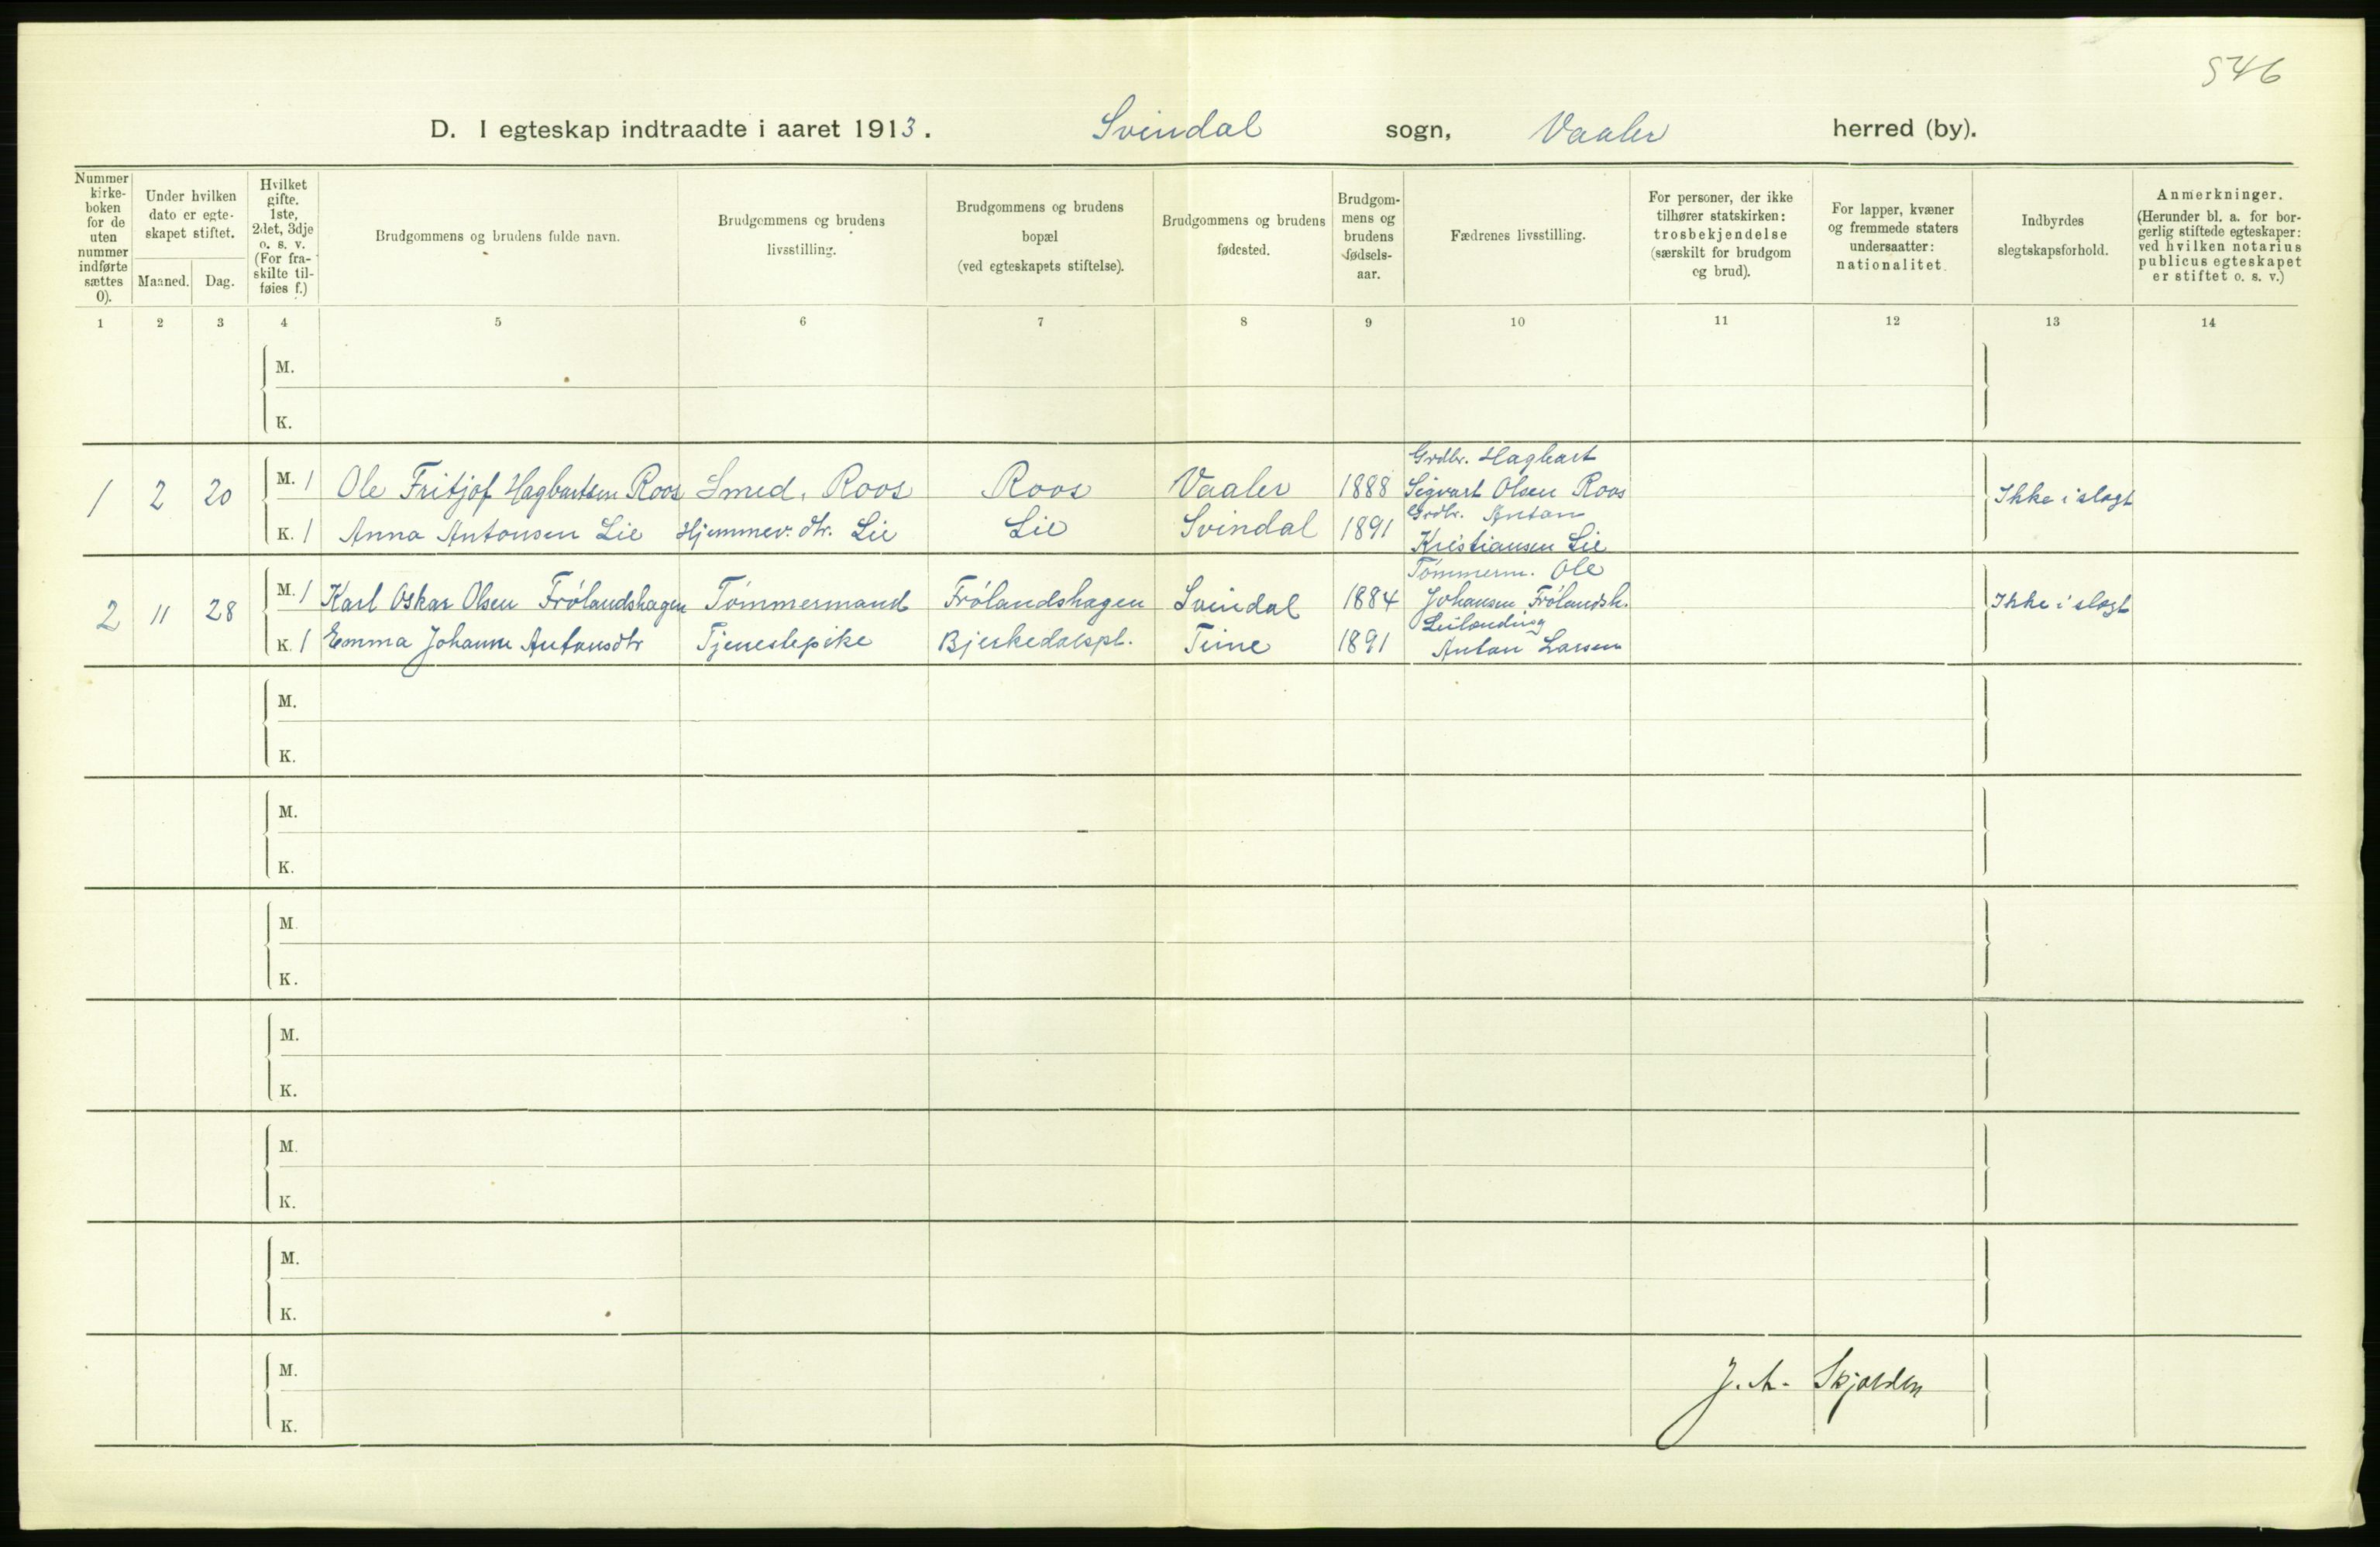 546
D. I egteskap indtraadte i aaret 1913. Svindal sogn, Vaaler herred (by).
Nummer kirke-boken for de uten nummer indførte sættes 0).
Under hvilken dato er egte-skapet stiftet.
Maaned. Dag.
Hvilket gifte. 1ste, 2det, 3dje o. s. v. (For fra-skilte til-føies f.)
Brudgommens og brudens fulde navn.
Brudgommens og brudens livsstilling.
Brudgommens og brudens bopæl (ved egteskapets stiftelse).
Brudgommens og brudens fødested.
Brudgom-mens og brudens fødsels-aar.
Fædrenes livsstilling.
For personer, der ikke tilhører statskirken: trosbekjendelse (særskilt for brudgom og brud).
For lapper, kvæner og fremmede staters undersaatter: nationalitet.
Indbyrdes slegtskapsforhold.
Anmerkninger. (Herunder bl. a. for bor-gerlig stiftede egteskaper: ved hvilken notarius publicus egteskapet er stiftet o. s. v.)
1 2 3 4 5 6 7 8 9 10 11 12 13 14
M.
K.
1 2 20 M. 1 Ole Fritjof Hagbartsen Roos Smed, Roos Roos Vaaler 1888 Grdbr. Hagbart Sigvart Olsen Roos Ikke i slegt
K. 1 Anna Antonsen Lie Hjemmev. dtr. Lie Lie Svindal 1891 Grdbr. Anton Kristiansen Lie
2 11 28 M. 1 Karl Oskar Olsen Frölandshagen Tömmermand Frölandshagen Svindal 1884 Tömmerm. Ole Johansen Frölandsh. Ikke i slegt
K. 1 Emma Johanne Antonsdtr Tjenestepike Bjerkedalspl. Teine 1891 Leilænding Anton Larsen
M.
K.
M.
K.
M.
K.
M.
K.
M.
K.
M.
K.
M.
K.
J. A. Skjolden